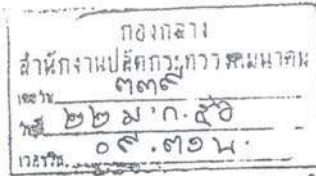 กองกลาง
สำนักงานปลัดกระทรวงคมนาคม
เลขรับ ๓๓๙
วันที่ ๒๒ ม.ค. ๕๖
เวลารับ ๐๙.๓๑ น.